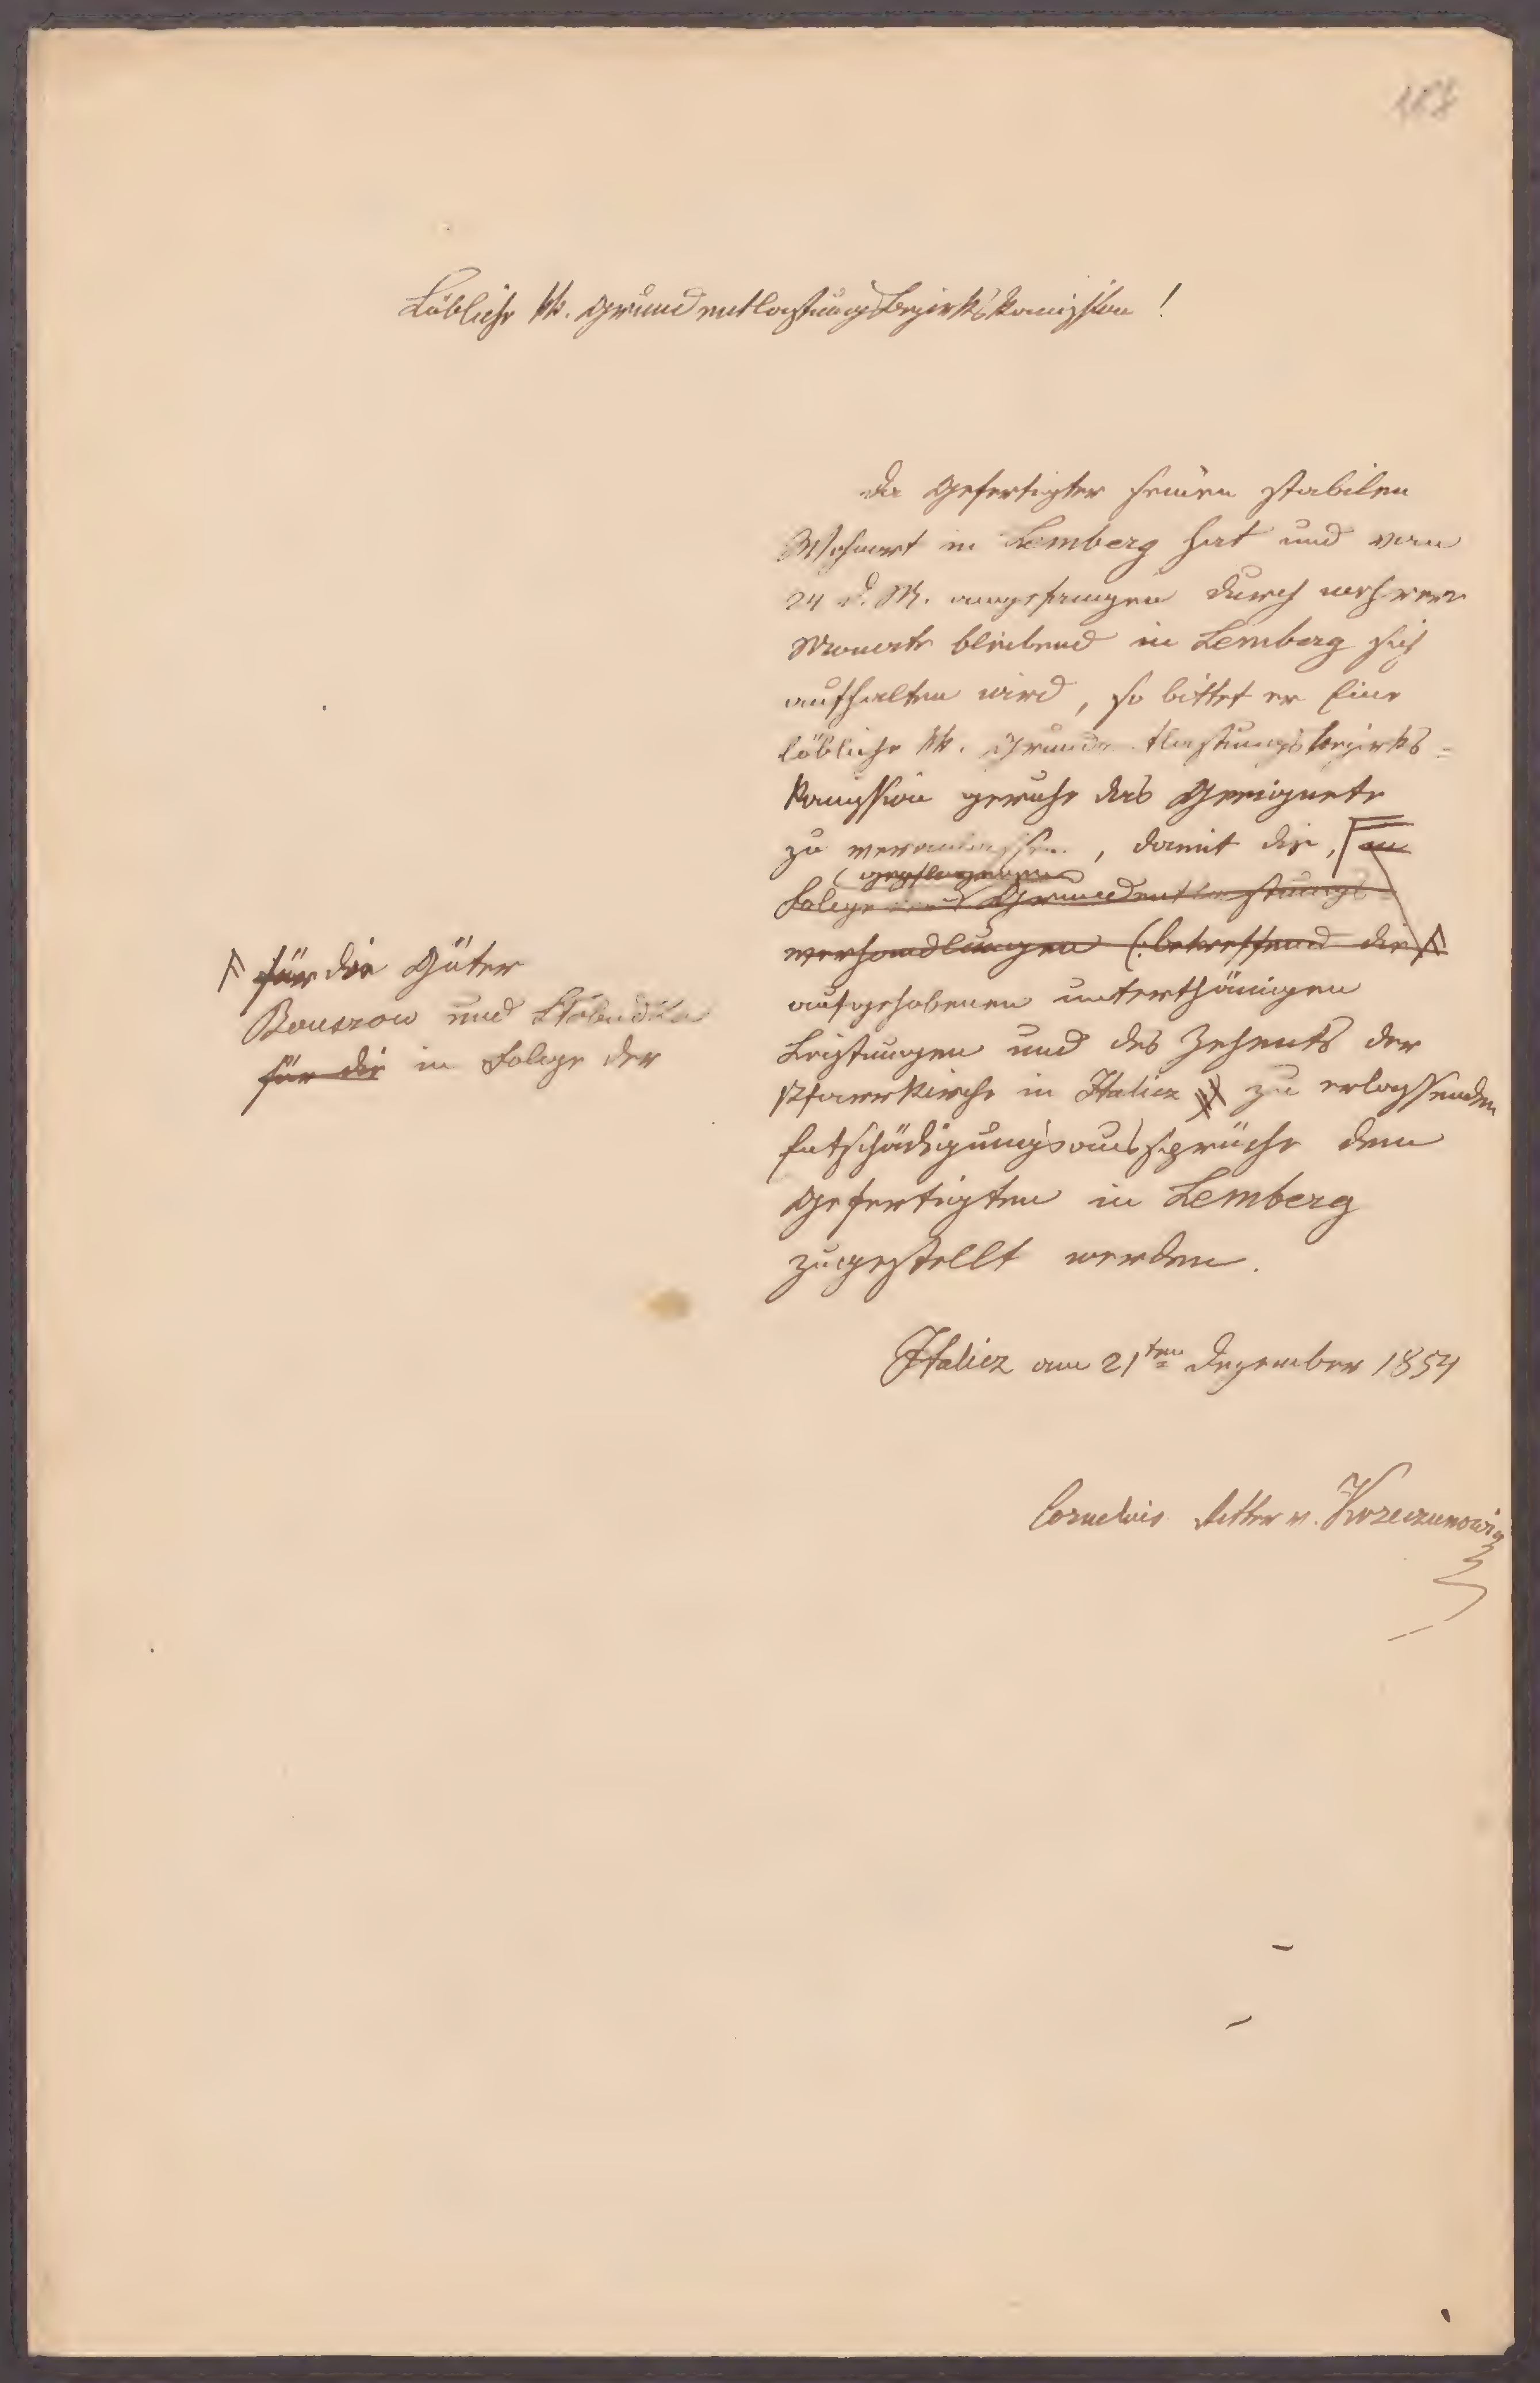 Löbliche kk. Grundentlastungsbezirkskomission!
Da Gefertigter seinen stabilen
Wohnort in Lemberg hat und vom
24 d. M. angefangen durch mehrere
Monate bleibend in Lemberg sich
aufhalten wird, so bittet er Eine
löbliche kk. Grundentlastungsbezirks=
komission geruhe das Geeignete
zu veranlassen, damit die, in
gepflogenen
Folge Grundentlastungs
verhandlungen (:betreffend die
aufgehobenen unterthänigen
Leistungen und des Zehents der
Pfarrkirche in Halicz zu erlassenden
Entschädigungsaussprüche dem
Gefertigten in Lemberg
zugestellt werden.
für die Güter
Bouszow und Słobudka
für die in Folge der
Halicz am 21ten Dezember 1854
Cornelius Ritter v. Krzeczunowicz